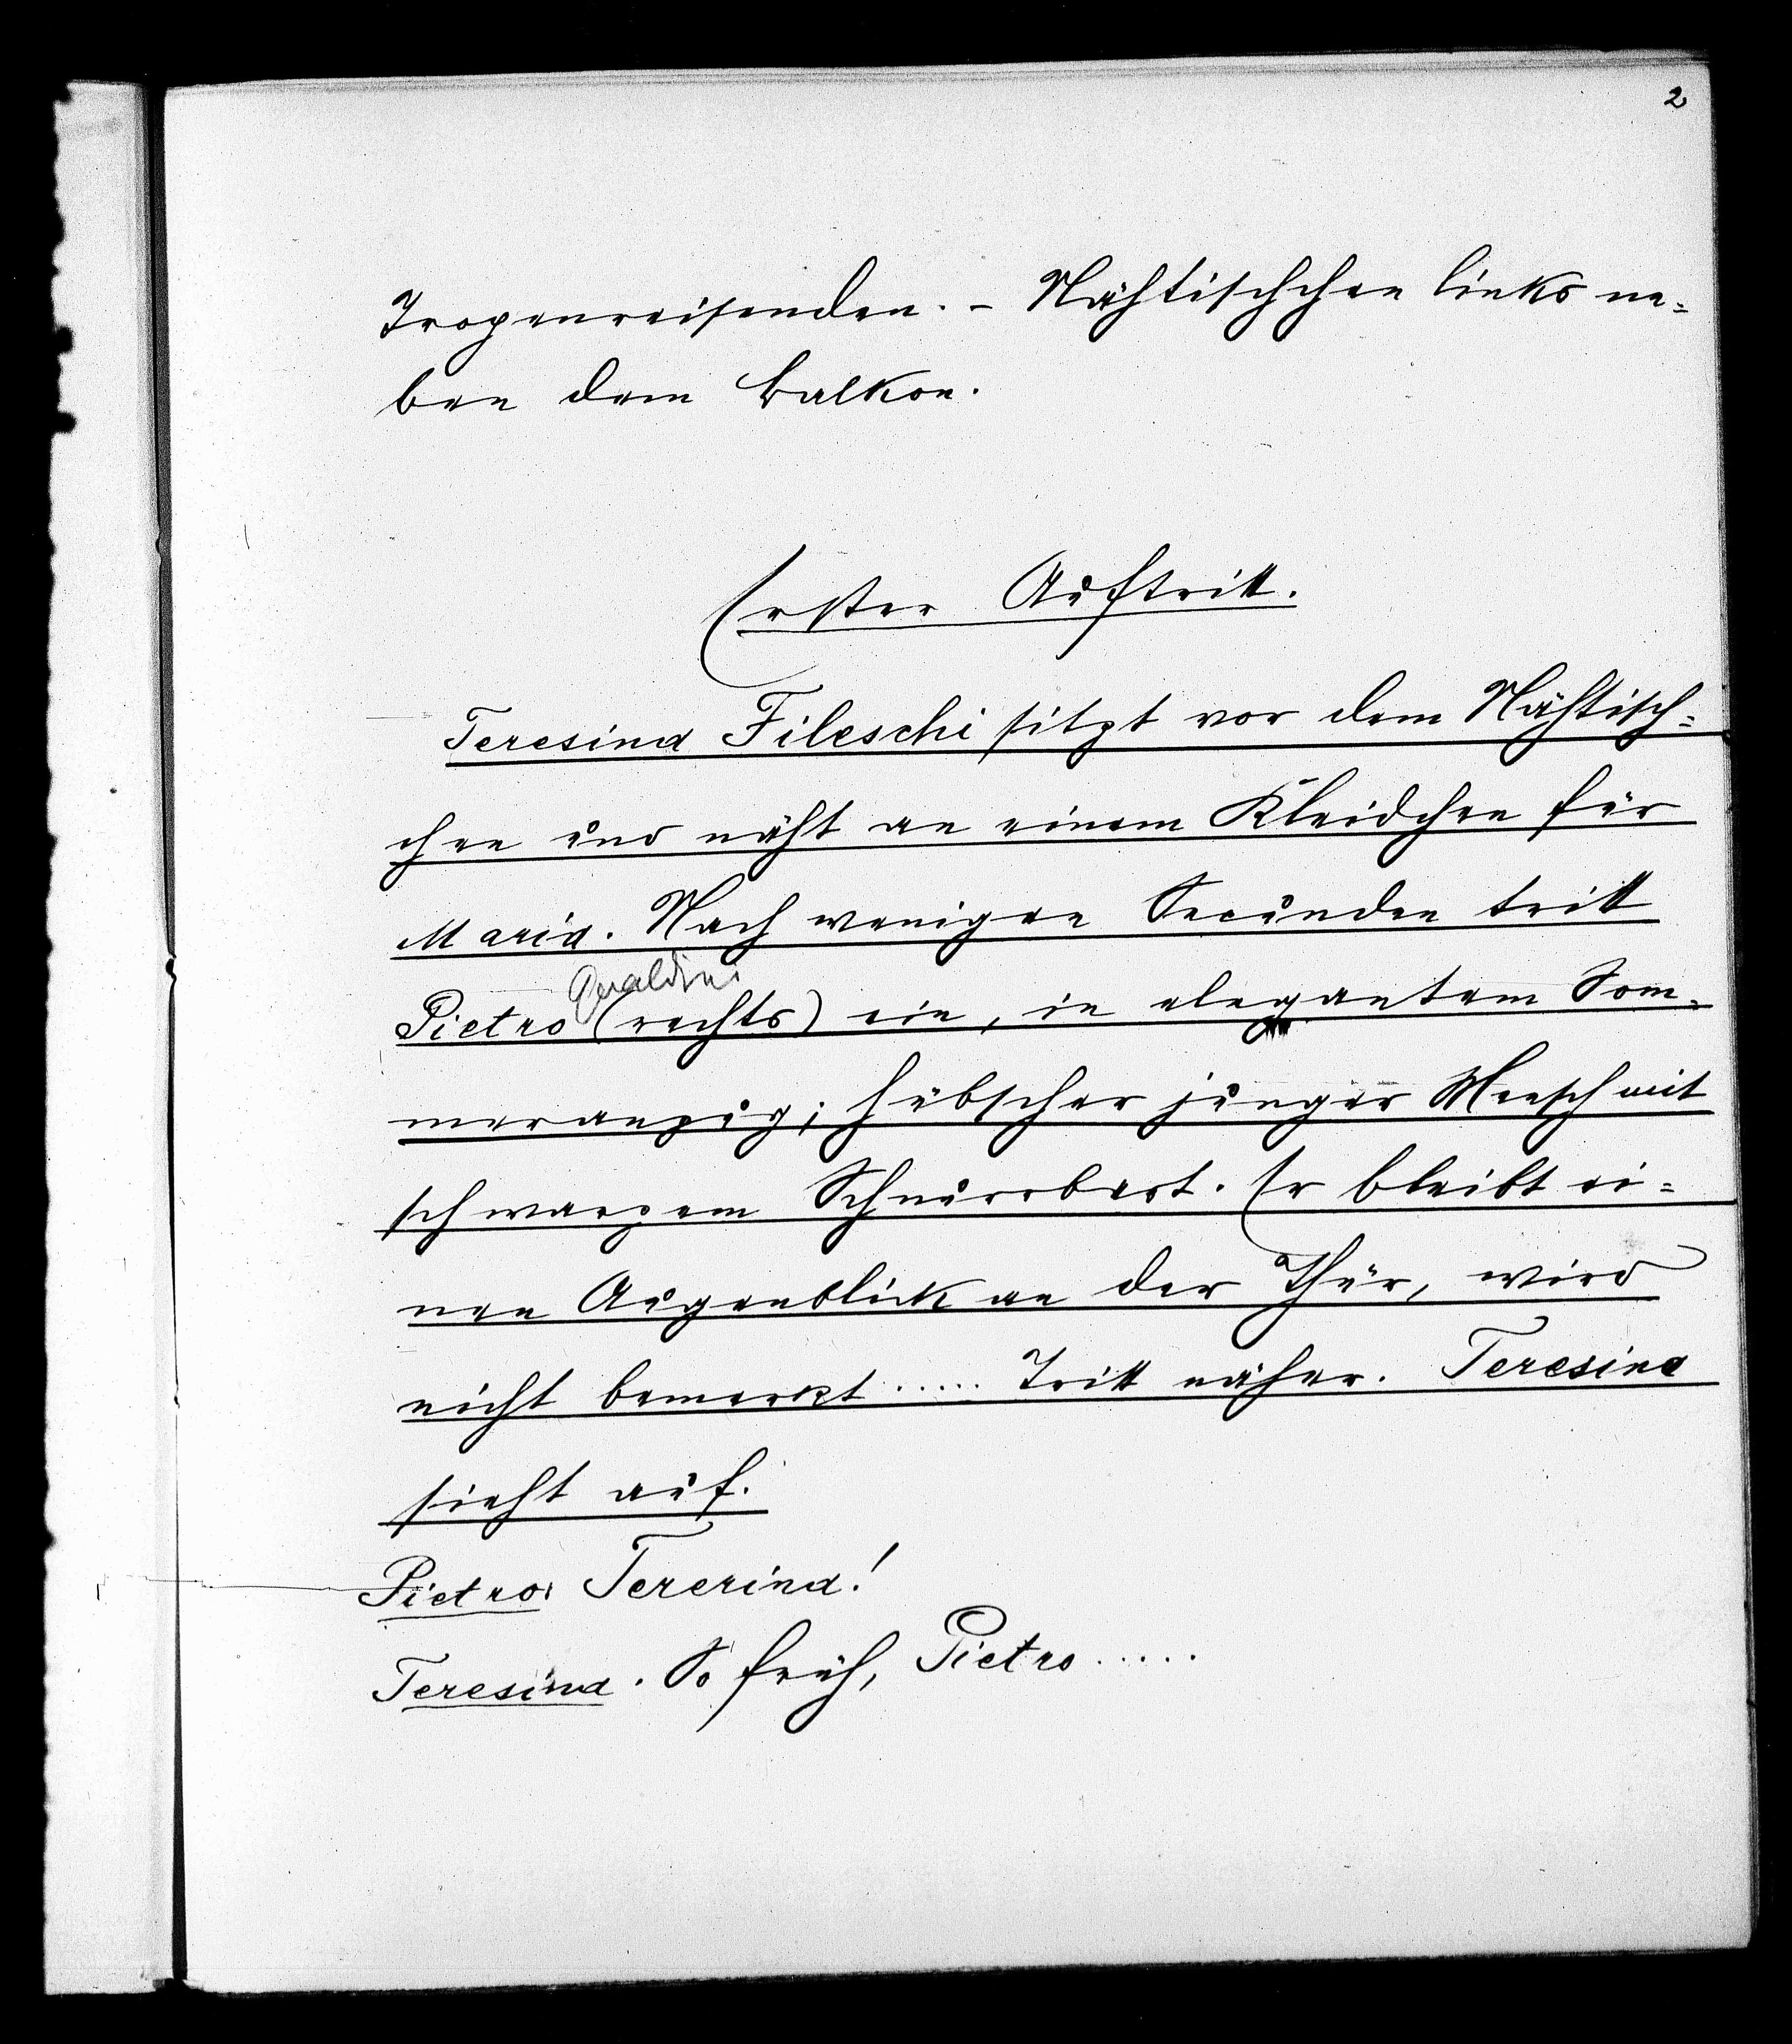 2
Tropenreisenden. – Nähtischchen links ne=
ben dem Balkon.
Erster Auftritt.
Teresina Fileschi sitzt vor dem Nähtisch=
chen und näht an einem Kleidchen für
Maria. Nach wenigen Secunden tritt
Geraldini
Pietro (rechts) ein, in elegantem Som=
meranzug; hübscher junger Mensch mit
schwarzem Schnurrbart. Er bleibt ei=
nen Augenblick an der Thür, wird
nicht bemerkt ..... Tritt näher. Teresina
sieht auf.
Pietro: Teresina!
Teresina. So früh, Pietro .....